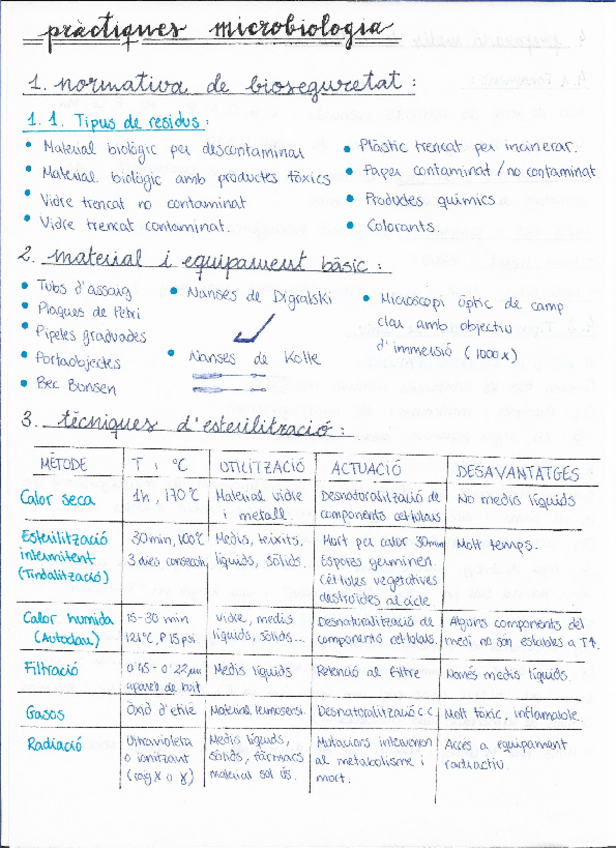 pràctiques microbiologia
1. normativa de bioseguretat:
1.1. Tipus de residus:
• Material biològic per descontaminar
• Material biològic amb productes tòxics
• Vidre trencat no contaminat
• Vidre trencat contaminat.
• Plàstic trencat per incinerar.
• Paper contaminat / no contaminat
• Productes químics
• Colorants.
2. material i equipament bàsic:
• Tubs d'assaig
• Plaques de Petri
• Pipetes graduades
• Portaobjectes
• Bec Bunsen
• Nanses de Digralski
• Nanses de Kolle
• Microscopi òptic de camp
clar amb objectiu
d'immersió (1000x)
3. tècniques d'esterilització:
MÈTODE T i ºC UTILITZACIÓ ACTUACIÓ DESAVANTATGES
Calor seca 1h, 170ºC Material vidre Desnaturalització de No medis líquids
i metall. components cel·lulars
Esterilització 30min, 100ºC Medis, teixits, Mort per calor 30min Molt temps.
intermitent 3 dies consecutius líquids, sòlids. Espores germinen
(Tindalització) cèl·lules vegetatives
destruïdes al cicle
Calor humida 15-30 min vidre, medis Desnaturalització de Alguns components del
(Autoclau) 121ºC, P 15psi líquids, sòlids... components cel·lulars. medi no són estables a Tª.
Filtració 0'45-0'22µm Medis líquids Retenció al filtre Només medis líquids.
aparell de buit
Gasos Òxid d'etilè Material termosensi. Desnaturalització c.c. Molt tòxic, inflamable.
Radiació Ultravioleta Medis líquids, Mutacions intervenen Accés a equipament
o ionitzant sòlids, fàrmacs al metabolisme i radiactiu.
(raig X o γ) material sol ús. mort.